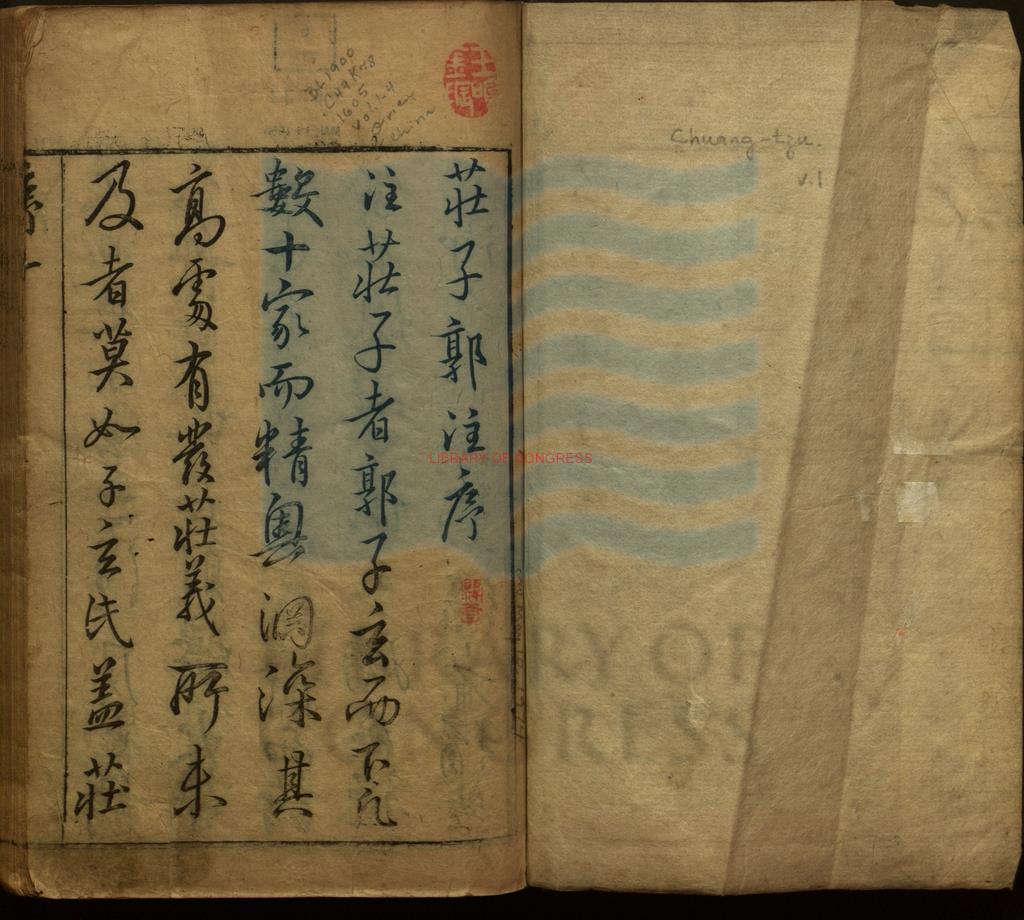 莊子郭注序
注莊子者郭子玄而下凡
數十家而精奧淵深其
高處有發莊義所未
及者莫如子玄氏蓋莊
Chuang-tzu.
v.1
BL1900
.C49K78
1605
vol.1-4
China
LIBRARY OF CONGRESS